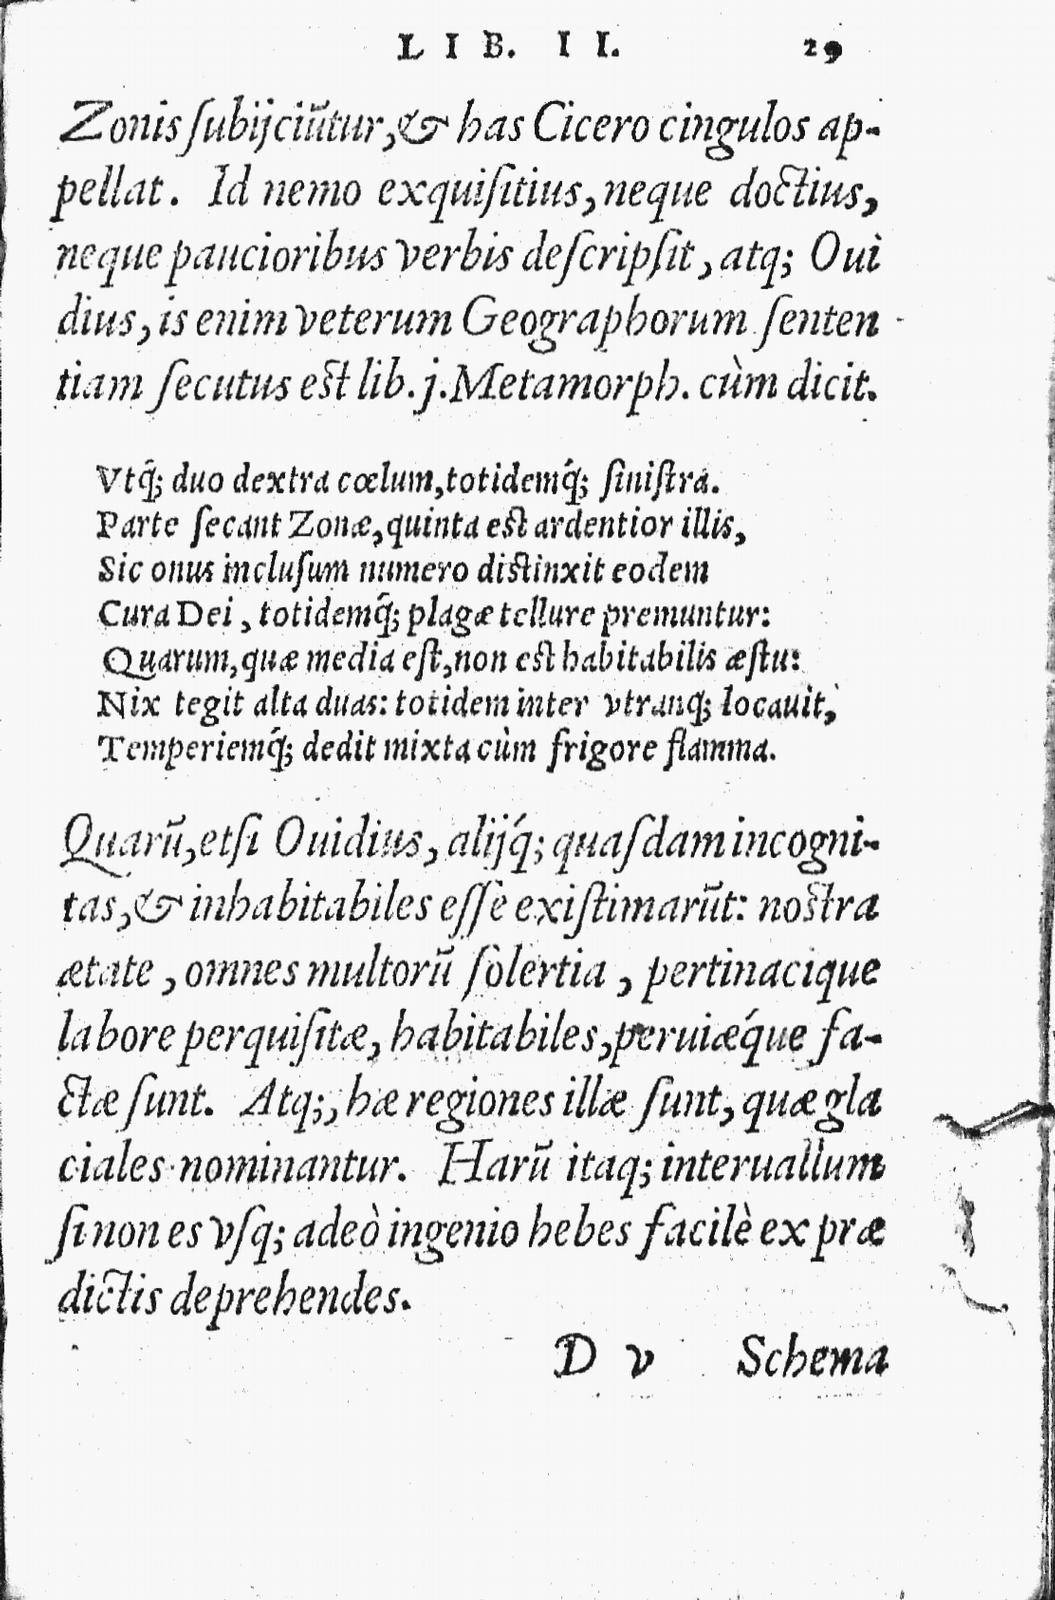 LIB. II. 29
Zonis ſubijciūtur, & has Cicero cingulos ap-
pellat. Id nemo exquiſitius, neque doctius,
neque paucioribus verbis deſcripſit, atq; Oui
dius, is enim veterum Geographorum ſenten
tiam ſecutus est lib. j. Metamorph. cùm dicit.
Vtq́; duo dextra cœlum, totidemq́; ſiniſtra.
Parte ſecant Zonæ, quinta est ardentior illis,
Sic onus incluſum numero distinxit eodem
Cura Dei, totidemq́; plagæ tellure premuntur:
Quarum, quæ media eſt, non est habitabilis æſtu:
Nix tegit alta duas: totidem inter vtranq; locauit,
Temperiemq́; dedit mixta cùm frigore flamma.
Quarū, etſi Ouidius, alijq́; quaſdam incogni-
tas, & inhabitabiles eſſe exiſtimarūt: nostra
ætate, omnes multorū ſolertia, pertinacique
labore perquiſitæ, habitabiles, peruiæq́ue fa-
ctæ ſunt. Atq;, hæ regiones illæ ſunt, quæ gla
ciales nominantur. Harū itaq; interuallum
ſi non es vſq; adeò ingenio hebes facilè ex præ
dictis deprehendes.
D v Schema